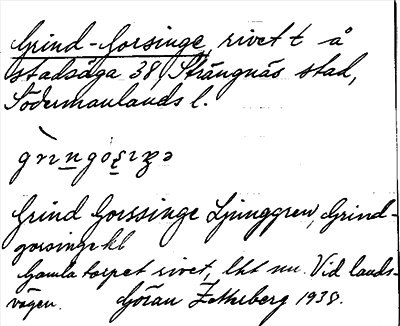 Grind-Gorsinge, rivet t å
stadsäga 38, Strängnäs stad,
Södermanlands l.
Grind Gorssinge Ljunggren, Grind-
gorsinge kl
Gamla torpet rivet, lht nu. Vid lands-
vägen. Göran Zetterberg 1938.